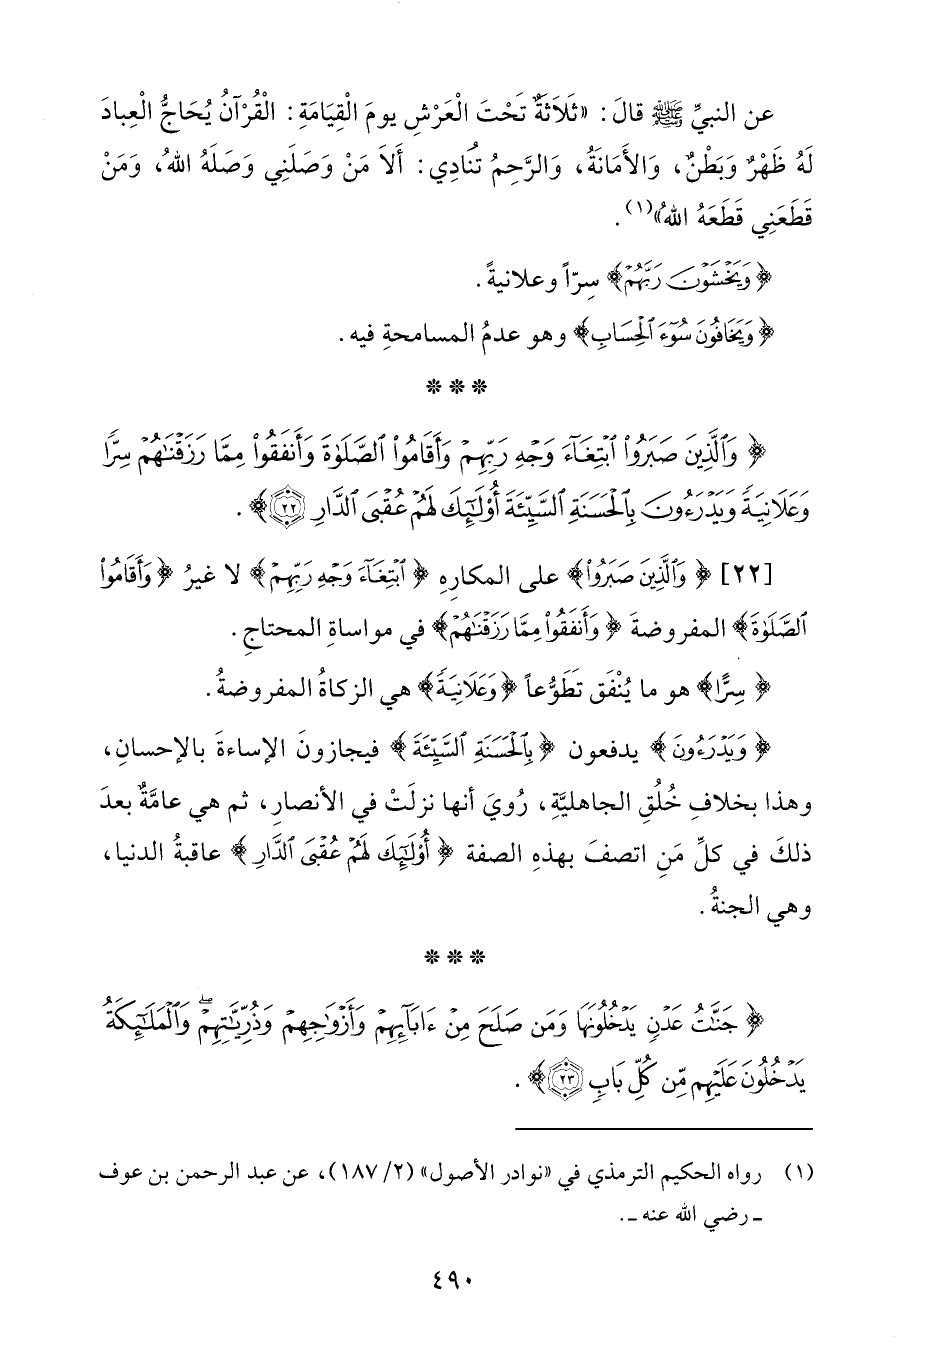 عن النبيِّ ﷺ قالَ: «ثَلَاثَةٌ تَحْتَ الْعَرْشِ يومَ الْقِيَامَةِ: الْقُرْآنُ يُحَاجُّ الْعِبادَ
لَهُ ظَهْرٌ وَبَطْنٌ، وَالأَمَانَةُ، وَالرَّحِمُ تُنَادِي: أَلاَ مَنْ وَصَلَنِي وَصَلَهُ اللهُ، وَمَنْ
قَطَعَنِي قَطَعَهُ اللهُ»(١).
﴿وَيَخْشَوْنَ رَبَّهُمْ﴾ سِرّاً وعلانيةً.
﴿وَيَخَافُونَ سُوٓءَ ٱلْحِسَابِ﴾ وهو عدمُ المسامحةِ فيه.
***
﴿وَٱلَّذِينَ صَبَرُوا۟ ٱبْتِغَآءَ وَجْهِ رَبِّهِمْ وَأَقَامُوا۟ ٱلصَّلَوٰةَ وَأَنفَقُوا۟ مِمَّا رَزَقْنَٰهُمْ سِرًّا
وَعَلَانِيَةً وَيَدْرَءُونَ بِٱلْحَسَنَةِ ٱلسَّيِّئَةَ أُو۟لَٰٓئِكَ لَهُمْ عُقْبَى ٱلدَّارِ ٢٢﴾.
[٢٢] ﴿وَٱلَّذِينَ صَبَرُوا۟﴾ على المكارهِ ﴿ٱبْتِغَآءَ وَجْهِ رَبِّهِمْ﴾ لا غيرُ ﴿وَأَقَامُوا۟
ٱلصَّلَوٰةَ﴾ المفروضةَ ﴿وَأَنفَقُوا۟ مِمَّا رَزَقْنَٰهُمْ﴾ في مواساةِ المحتاجِ.
﴿سِرًّا﴾ هو ما يُنْفَق تَطَوُّعاً ﴿وَعَلَانِيَةً﴾ هي الزكاةُ المفروضةُ.
﴿وَيَدْرَءُونَ﴾ يدفعون ﴿بِٱلْحَسَنَةِ ٱلسَّيِّئَةَ﴾ فيجازونَ الإساءةَ بالإحسانِ،
وهذا بخلافِ خُلُقِ الجاهليَّةِ، رُويَ أنها نزلَتْ في الأنصارِ، ثم هي عامَّةٌ بعدَ
ذلكَ في كلِّ مَنِ اتصفَ بهذهِ الصفة ﴿أُو۟لَٰٓئِكَ لَهُمْ عُقْبَى ٱلدَّارِ﴾ عاقبةُ الدنيا،
وهي الجنةُ.
***
﴿جَنَّٰتُ عَدْنٍ يَدْخُلُونَهَا وَمَن صَلَحَ مِنْ ءَابَآئِهِمْ وَأَزْوَٰجِهِمْ وَذُرِّيَّٰتِهِمْ ۖ وَٱلْمَلَٰٓئِكَةُ
يَدْخُلُونَ عَلَيْهِم مِّن كُلِّ بَابٍ ٢٣﴾.
(١) رواه الحكيم الترمذي في «نوادر الأصول» (٢/ ١٨٧)، عن عبد الرحمن بن عوف
ـ رضي الله عنه ـ.
٤٩٠